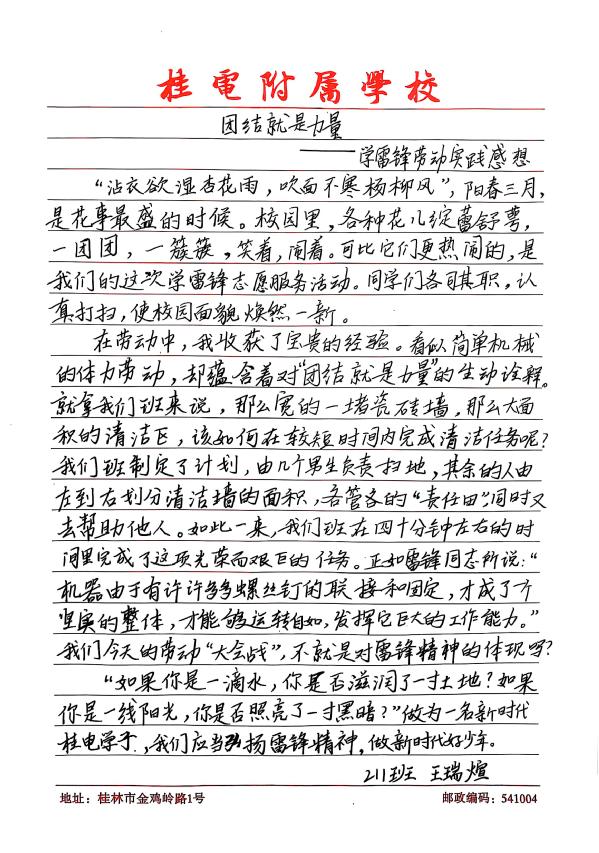 桂電附属學校
团结就是力量
——学雷锋劳动实践感想
“沾衣欲湿杏花雨，吹面不寒杨柳风”，阳春三月，
是花事最盛的时候。校园里，各种花儿绽蕾舒萼，
一团团，一簇簇，笑着，闹着。可比它们更热闹的，是
我们的这次学雷锋志愿服务活动。同学们各司其职，认
真打扫，使校园面貌焕然一新。
在劳动中，我收获了宝贵的经验。看似简单机械
的体力劳动，却蕴含着对“团结就是力量”的生动诠释。
就拿我们班来说，那么宽的一堵瓷砖墙，那么大面
积的清洁区，该如何在较短时间内完成清洁任务呢？
我们班制定了计划，由几个男生负责扫地，其余的人由
左到右划分清洁墙的面积，各管各的“责任田”，同时又
去帮助他人。如此一来，我们班在四十分钟左右的时
间里完成了这项光荣而艰巨的任务。正如雷锋同志所说：“
机器由于有许许多多螺丝钉的联接和固定，才成了个
坚实的整体，才能够运转自如，发挥它巨大的工作能力。”
我们今天的劳动“大会战”，不就是对雷锋精神的体现吗？
“如果你是一滴水，你是否滋润了一寸土地？如果
你是一线阳光，你是否照亮了一寸黑暗？”做为一名新时代
桂电学子，我们应当弘扬雷锋精神，做新时代好少年。
211班 王瑞煊
地址：桂林市金鸡岭路1号 邮政编码：541004